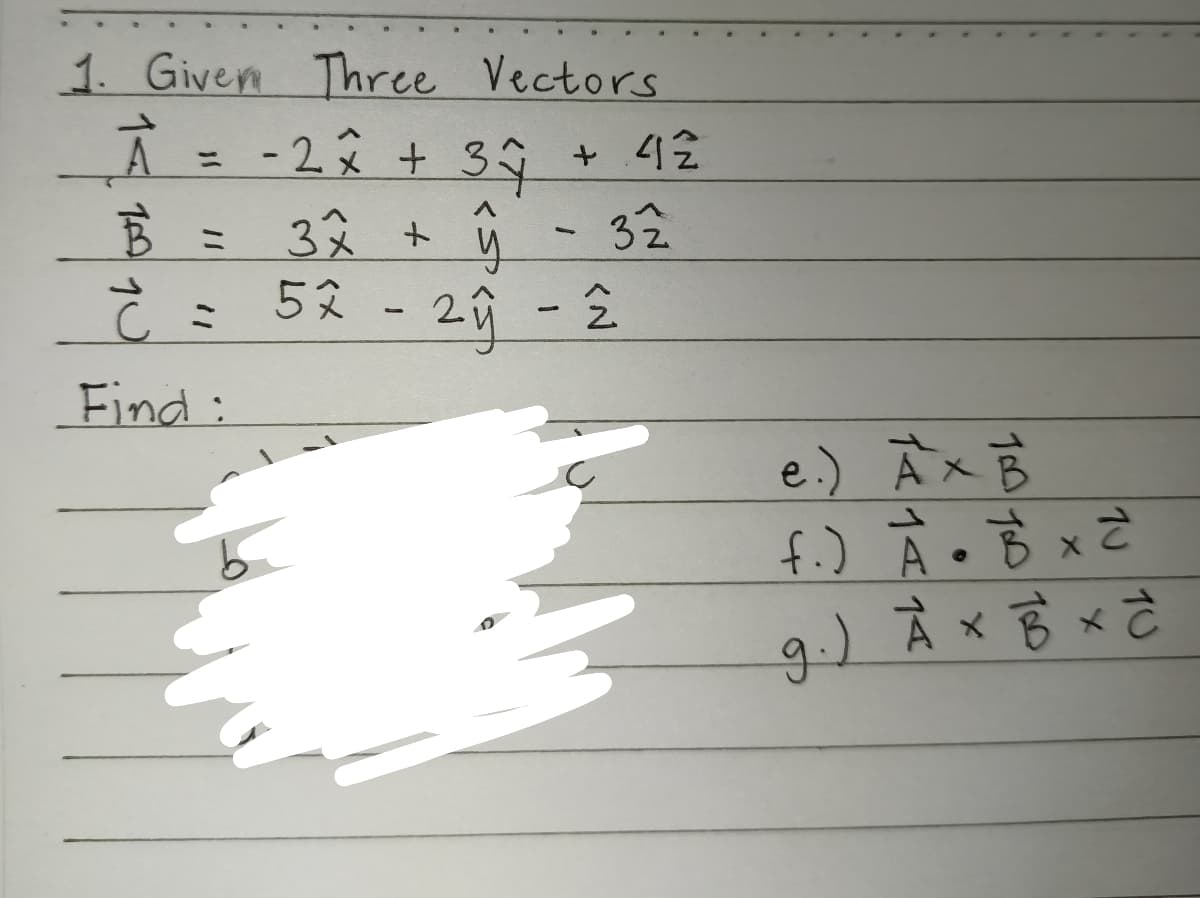 1. Given Three Vectors
A⃗ = -2x̂ + 3ŷ + 4ẑ
B⃗ = 3x̂ + ŷ - 3ẑ
C⃗ = 5x̂ - 2ŷ - ẑ
Find :
e.) A⃗ × B⃗
f.) A⃗ • B⃗ × C⃗
g.) A⃗ × B⃗ × C⃗